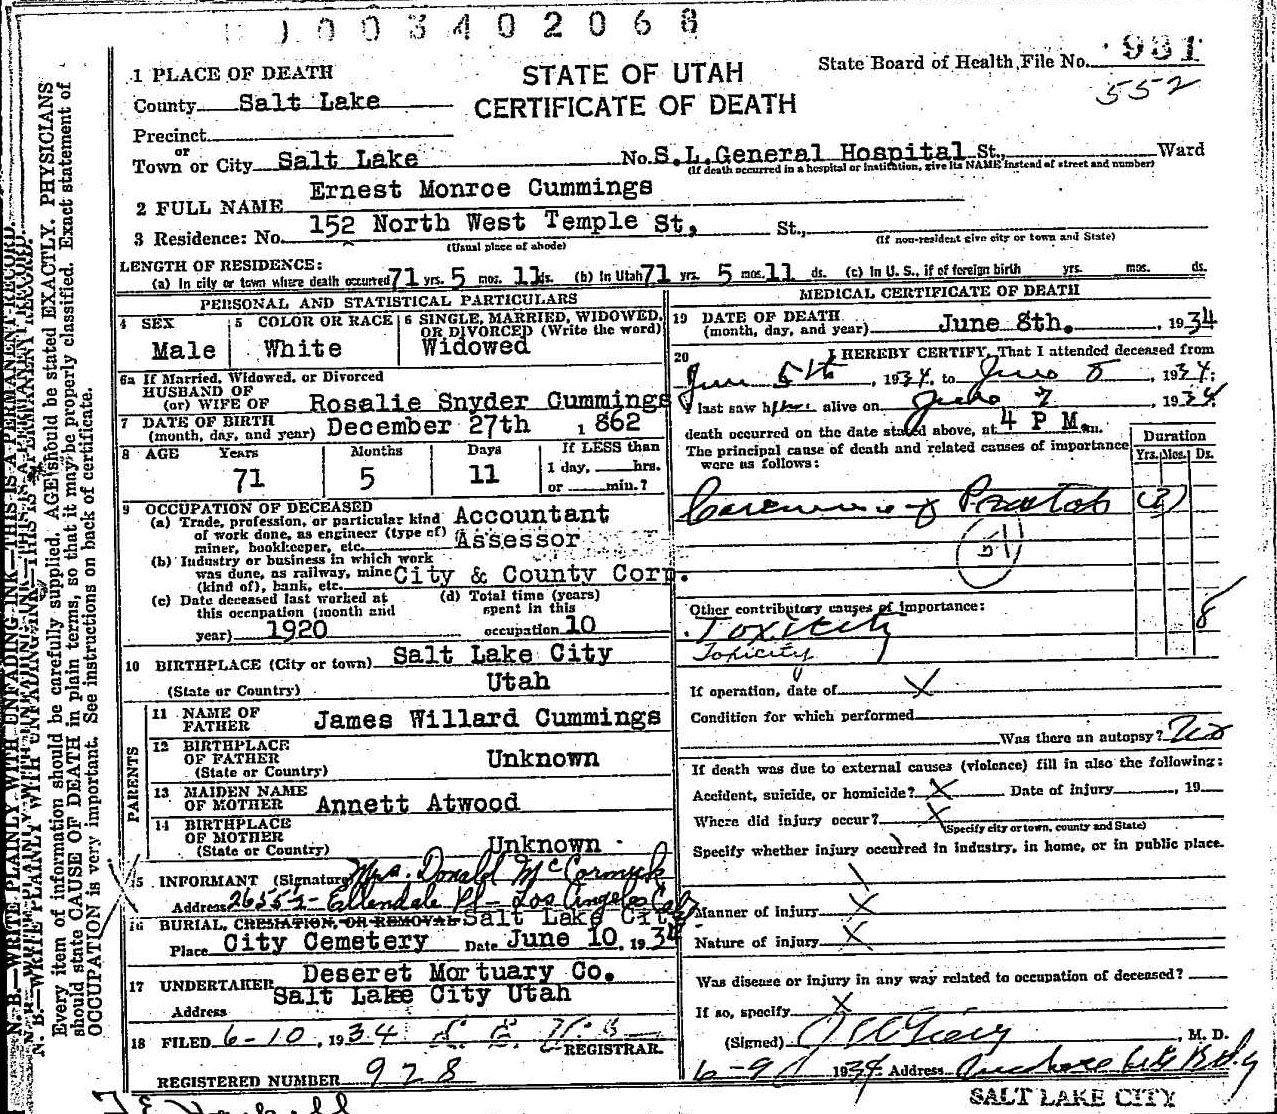 1003402068
1 PLACE OF DEATH
STATE OF UTAH
CERTIFICATE OF DEATH
State Board of Health File No. 931
552
County Salt Lake
Precinct
or
Town or City Salt Lake No. S.L.General Hospital St., Ward
(If death occurred in a hospital or institution, give its NAME instead of street and number)
2 FULL NAME Ernest Monroe Cummings
3 Residence: No. 152 North West Temple St, St.,
(Usual place of abode) (If non-resident give city or town and State)
LENGTH OF RESIDENCE:
(a) In city or town where death occurred 71 yrs. 5 mos. 11 ds. (b) In Utah 71 yrs. 5 mos. 11 ds. (c) In U. S., if of foreign birth yrs. mos. ds.
PERSONAL AND STATISTICAL PARTICULARS
4 SEX Male
5 COLOR OR RACE White
6 SINGLE, MARRIED, WIDOWED, OR DIVORCED (Write the word) Widowed
6a If Married, Widowed, or Divorced
HUSBAND OF
(or) WIFE OF Rosalie Snyder Cummings
7 DATE OF BIRTH
(month, day, and year) December 27th 1862
8 AGE Years Months Days If LESS than
71 5 11 1 day, hrs.
or min.?
9 OCCUPATION OF DECEASED
(a) Trade, profession, or particular kind of work done, as engineer (type of) miner, bookkeeper, etc. Accountant Assessor
(b) Industry or business in which work was done, as railway, mine (kind of), bank, etc. City & County Corp.
(c) Date deceased last worked at this occupation (month and year) 1920
(d) Total time (years) spent in this occupation 10
10 BIRTHPLACE (City or town) Salt Lake City
(State or Country) Utah
PARENTS
11 NAME OF FATHER James Willard Cummings
12 BIRTHPLACE OF FATHER
(State or Country) Unknown
13 MAIDEN NAME OF MOTHER Annett Atwood
14 BIRTHPLACE OF MOTHER
(State or Country) Unknown
15 INFORMANT (Signature) Mrs. Donald McCormick
Address 2655½ Ellendale Pl - Los Angeles Cal
16 BURIAL, CREMATION, OR REMOVAL Salt Lake City
Place City Cemetery Date June 10, 1934
17 UNDERTAKER Deseret Mortuary Co.
Address Salt Lake City Utah
18 FILED 6-10, 1934
REGISTRAR
REGISTERED NUMBER 928
MEDICAL CERTIFICATE OF DEATH
19 DATE OF DEATH
(month, day, and year) June 8th. , 1934
20 I HEREBY CERTIFY, That I attended deceased from
June 5th, 1934, to June 8, 1934;
I last saw him alive on June 7, 1934;
death occurred on the date stated above, at 4 P M. m.
The principal cause of death and related causes of importance were as follows:
Duration
Yrs. Mos. Ds.
Carcinoma of Prostate (3)
51
Other contributory causes of importance:
Toxicity 8
Toxicity
If operation, date of X
Condition for which performed
Was there an autopsy? No
If death was due to external causes (violence) fill in also the following:
Accident, suicide, or homicide? X Date of injury , 19
Where did injury occur? X
(Specify city or town, county and State)
Specify whether injury occurred in industry, in home, or in public place.
Manner of injury X
Nature of injury X
Was disease or injury in any way related to occupation of deceased?
If so, specify X
(Signed) M. D.
6-9 1934 Address
SALT LAKE CITY
N. B.—WRITE PLAINLY WITH UNFADING INK—THIS IS A PERMANENT RECORD.
Every item of information should be carefully supplied. AGE should be stated EXACTLY. PHYSICIANS
should state CAUSE OF DEATH in plain terms, so that it may be properly classified. Exact statement of
OCCUPATION is very important. See instructions on back of certificate.